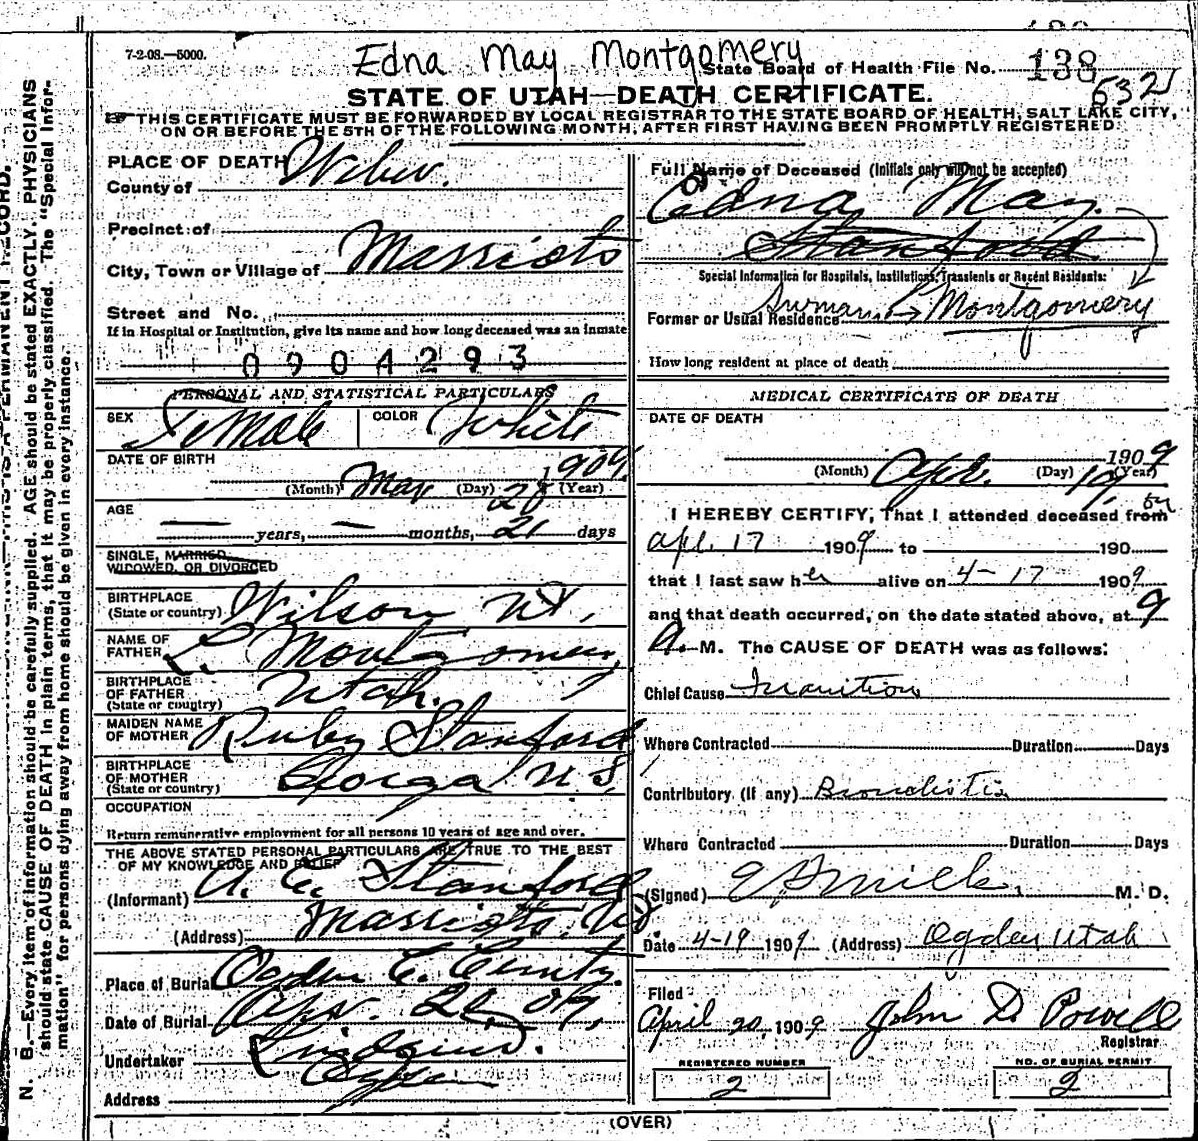 7-2-08.—5000.
Edna May Montgomery
State Board of Health File No. 138
632
STATE OF UTAH—DEATH CERTIFICATE.
THIS CERTIFICATE MUST BE FORWARDED BY LOCAL REGISTRAR TO THE STATE BOARD OF HEALTH, SALT LAKE CITY,
ON OR BEFORE THE 5TH OF THE FOLLOWING MONTH, AFTER FIRST HAVING BEEN PROMPTLY REGISTERED.
PLACE OF DEATH
County of Weber.
Precinct of
City, Town or Village of Marriots
Street and No.
If in Hospital or Institution, give its name and how long deceased was an inmate
0904293
PERSONAL AND STATISTICAL PARTICULARS
SEX Female COLOR White
DATE OF BIRTH
1909.
(Month) Mar (Day) 28 (Year)
AGE
— years, — months, 21 days
SINGLE, MARRIED,
WIDOWED, OR DIVORCED
BIRTHPLACE
(State or country) Wilson Ut,
NAME OF
FATHER L. Montgomery,
BIRTHPLACE
OF FATHER
(State or country) Utah.
MAIDEN NAME
OF MOTHER Ruby Stanford
BIRTHPLACE
OF MOTHER
(State or country) Gorga U S,
OCCUPATION
Return remunerative employment for all persons 10 years of age and over.
THE ABOVE STATED PERSONAL PARTICULARS ARE TRUE TO THE BEST
OF MY KNOWLEDGE AND BELIEF
(Informant) A. E. Stanford
(Address) Marriots, Ut
Place of Burial Ogden C. Cemty.
Date of Burial Apr. 20, 09,
Undertaker
Address Ogden
Full Name of Deceased (Initials only will not be accepted)
Edna May
Stanford
Special Information for Hospitals, Institutions, Transients or Recent Residents:
Former or Usual Residence Surname → Montgomery
How long resident at place of death
MEDICAL CERTIFICATE OF DEATH
DATE OF DEATH
1909
(Month) Apl. (Day) 19, (Year)
I HEREBY CERTIFY, That I attended deceased from
on
Apl. 17 1909 to 190
that I last saw her alive on 4-17 1909
and that death occurred, on the date stated above, at 9
A. M. The CAUSE OF DEATH was as follows:
Chief Cause Inanition
Where Contracted Duration Days
Contributory (if any) Bronchitis
Where Contracted Duration Days
(Signed) M. D.
Date 4-19 1909 (Address) Ogden Utah
Filed
April 20, 1909 John D Powell
Registrar
REGISTERED NUMBER
2
NO. OF BURIAL PERMIT
2
(OVER)
N. B.—Every item of information should be carefully supplied. AGE should be stated EXACTLY. PHYSICIANS
should state CAUSE OF DEATH in plain terms, that it may be properly classified. The "Special Infor-
mation" for persons dying away from home should be given in every instance.